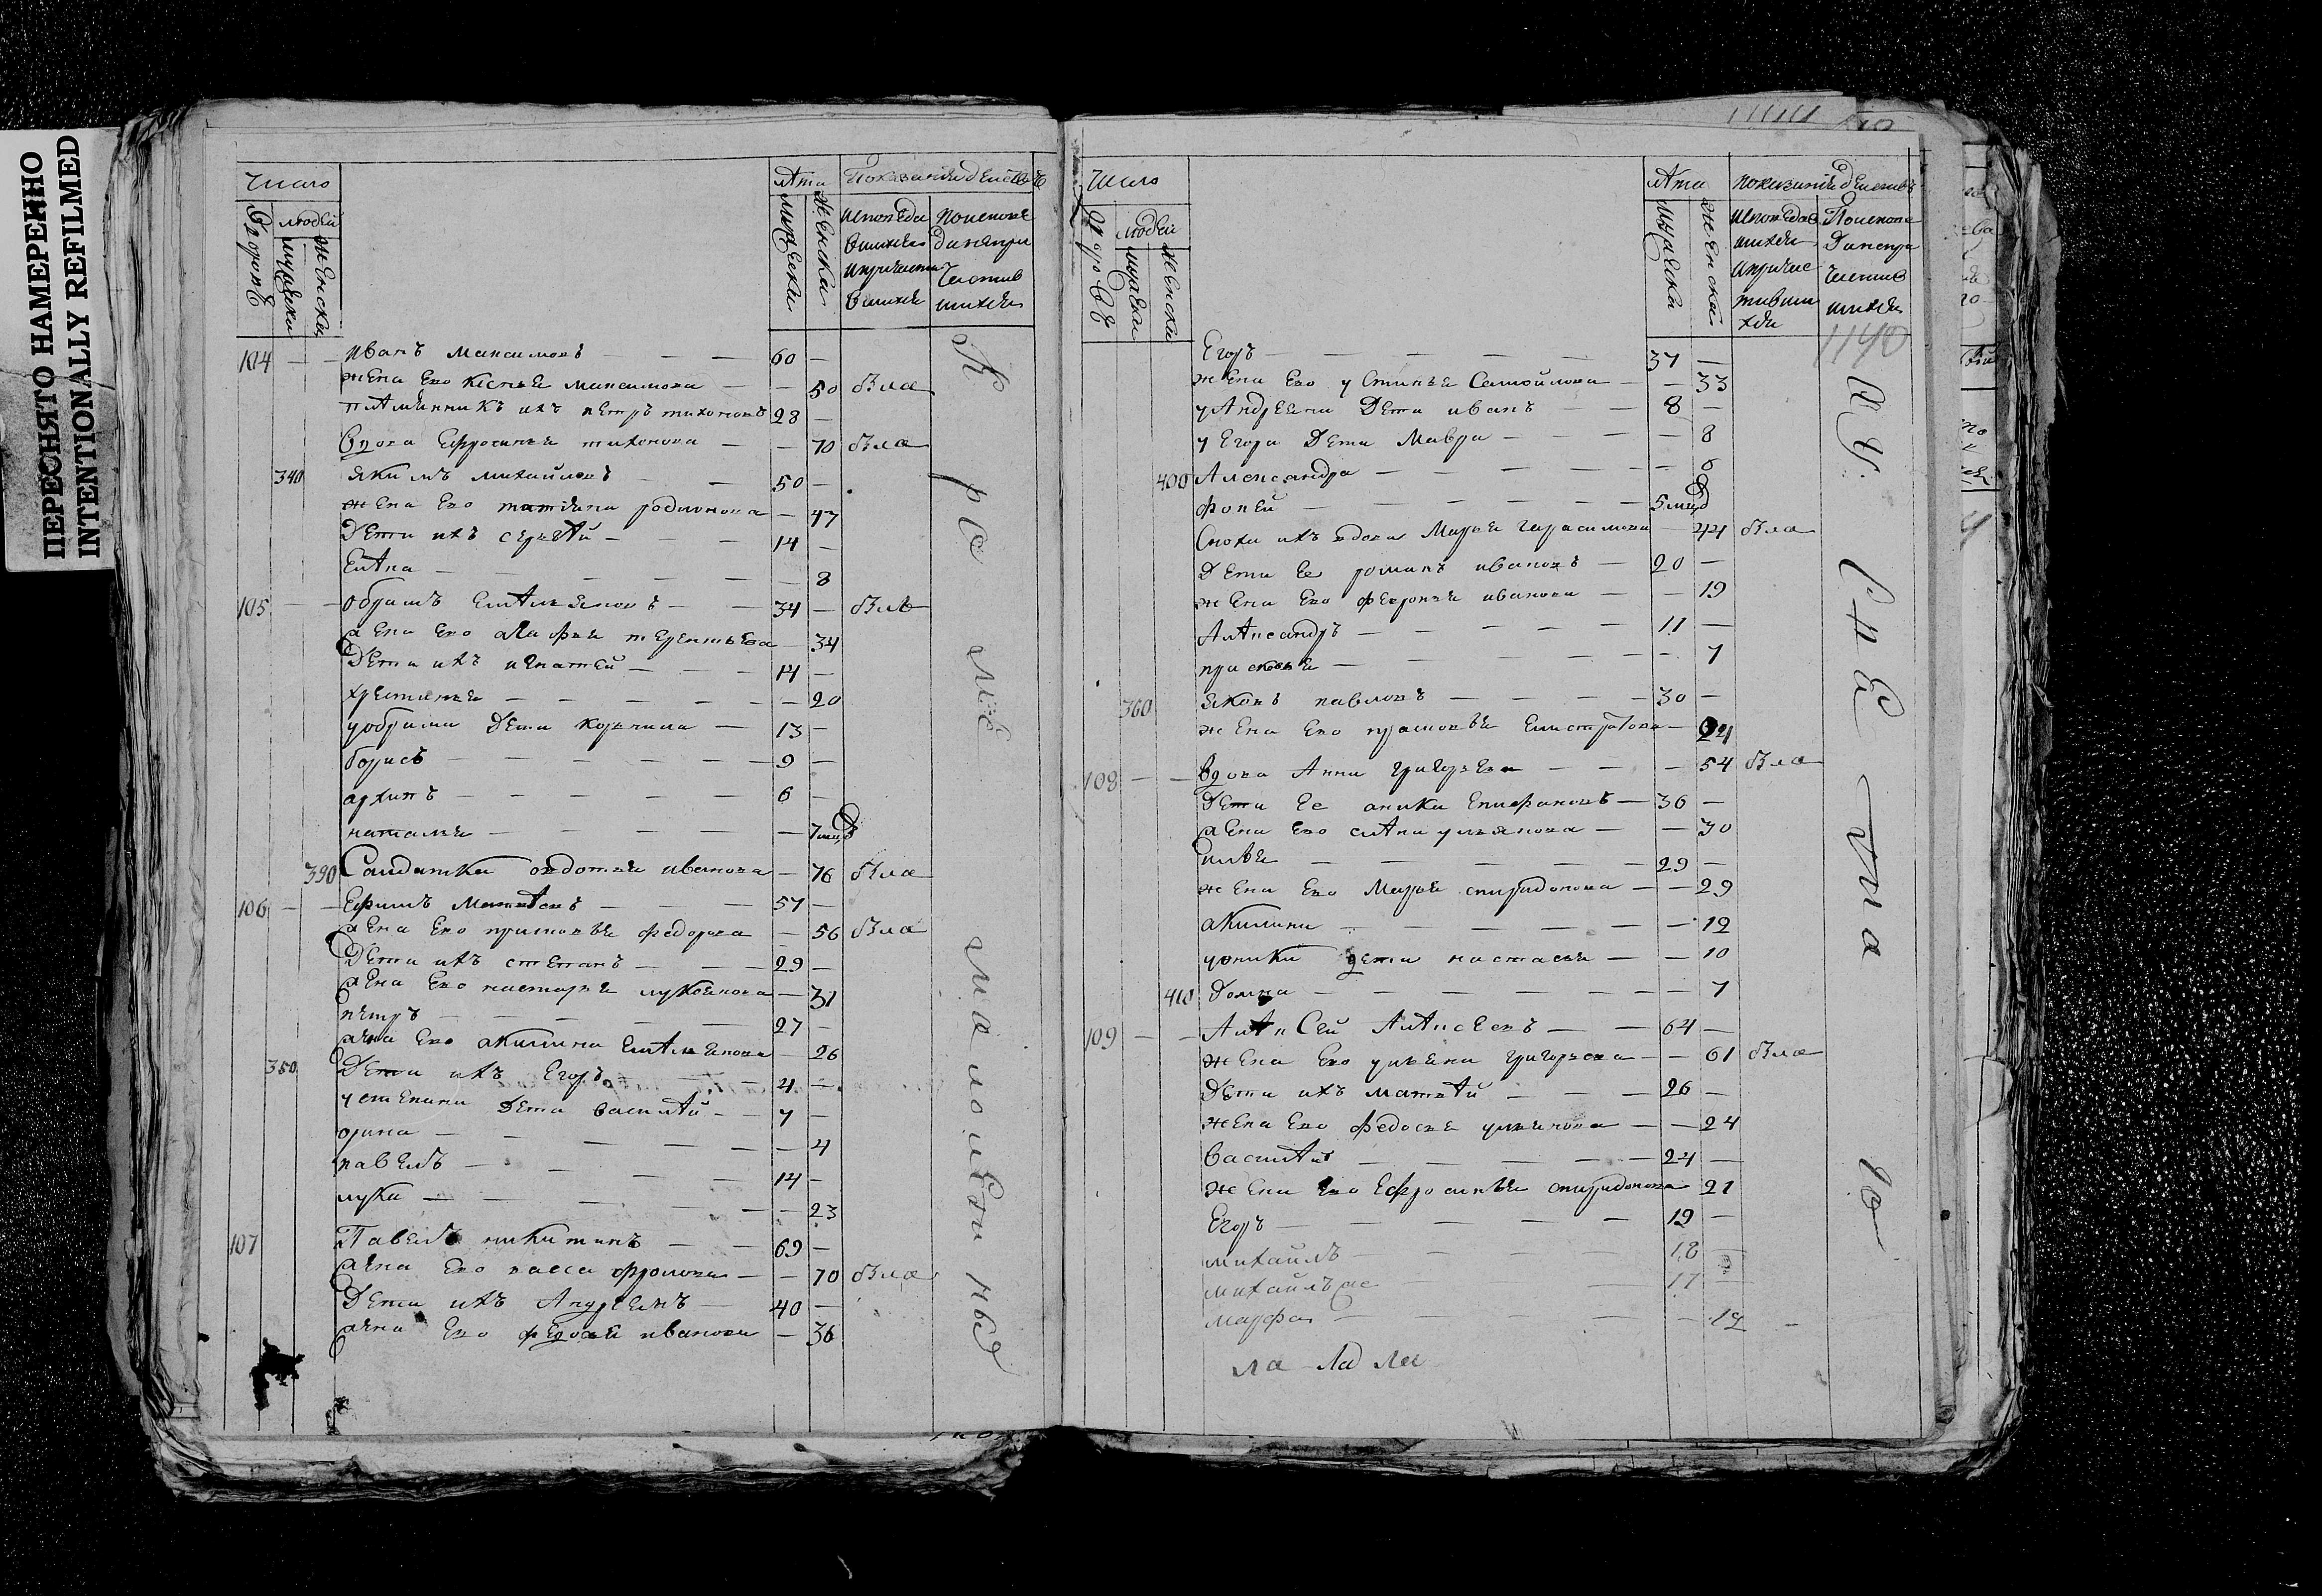 ПЕРЕСНЯТО НАМЕРЕННО
INTENTIONALLY REFILMED
Число
людей
мужеска
женска
лѣта
мужеска
женска
104 — — иванъ максимовъ — — — 60 —
жена Ево максимова — — 50 была
племянникъ ихъ петръ тихоновъ 28 —
вдова Ефросинья тихонова — — 70 была
340 якимъ михайловъ — — 50 —
жена Ево татияна родионова — 47
Дети ихъ сергѣй — — — 14 —
Елѣна — — — — — 8
105 — — обрамъ Емѣльяновъ — — 34 — былъ
жена Ево терентьева — 34
Дети ихъ игнатей — — — 14 —
хрестинья — — — — — 20
у обрама Дети корнила — 13 —
борисъ — — — — — 9 —
архипъ — — — — — 6 —
наталья — — — — — 7 мцъ
390 Салдатка овдотья иванова — 76 была
106 — — Ефимъ Матвѣевъ — — — 57 —
жена Ево прасковья федорова — 56 была
Дети ихъ степанъ — — — 29 —
жена Ево настасья лукоянова — 31
петръ — — — — 27 —
жена Ево акилина Емѣльянова — 26
350 Дети ихъ Егоръ — — 4 —
у степана Дети василѣй — — 7 —
орина — — — — — 4
павелъ — — — — 14 —
лука — — — — — 23
107 Павелъ никитинъ — — 69 —
жена Ево васса фролова — — 70 была
Дети ихъ Андреянъ — 40 —
жена Ево федосья иванова — 36
Число
людей
мужеска
женска
лѣта
мужеска
женска
1140
Егоръ — — — — — 37 —
жена Ево устинья Самойлова — — 33
у Андреяна Дети иванъ — — 8 —
у Егора Дети Мавра — — — — 8
400 Александра — — — — — 6
фокей — — — — — 5 мцъ
Сноха ихъ вдова Марья Герасимова — 44 была
Дети Ее романъ ивановъ — 20 —
жена Ево февронья иванова — — 19
Алѣксандръ — — — — — 11 —
прасковья — — — — — 7
360 яковъ павловъ — — — — 30 —
жена Ево прасковья Елистратова — 24
108 — — вдова Анна григорьева — — — 54 была
Дети Ее аника Епифановъ — 36 —
жена Ево Елѣна ульянова — — 30
илья — — — — — 29 —
жена Ево Марья спиридонова — — 29
акилина — — — — — 12
у аники дети настасья — — 10
410 Домна — — — — — — 7
109 — — Алѣксей Алѣксеевъ — — 64 —
жена Ево ульяна григорьева — — 61 была
Дети ихъ матвѣй — — — 26 —
жена Ево федосья ульянова — — 24
василѣй — — — — — 24 —
жена Ево Ефросинья спиридонова 21
Егоръ — — — — — 19 —
михайлъ — — — — 18 —
михайлъ же — — 17 —
марфа — — — — 12
ла ла ла